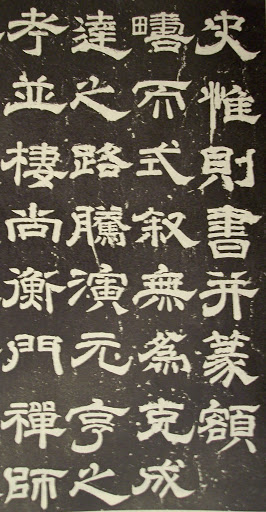 史惟則書并篆額
疇而式叙無為克成
達之路騰演元亨之
孝並棲尚衡門禪師